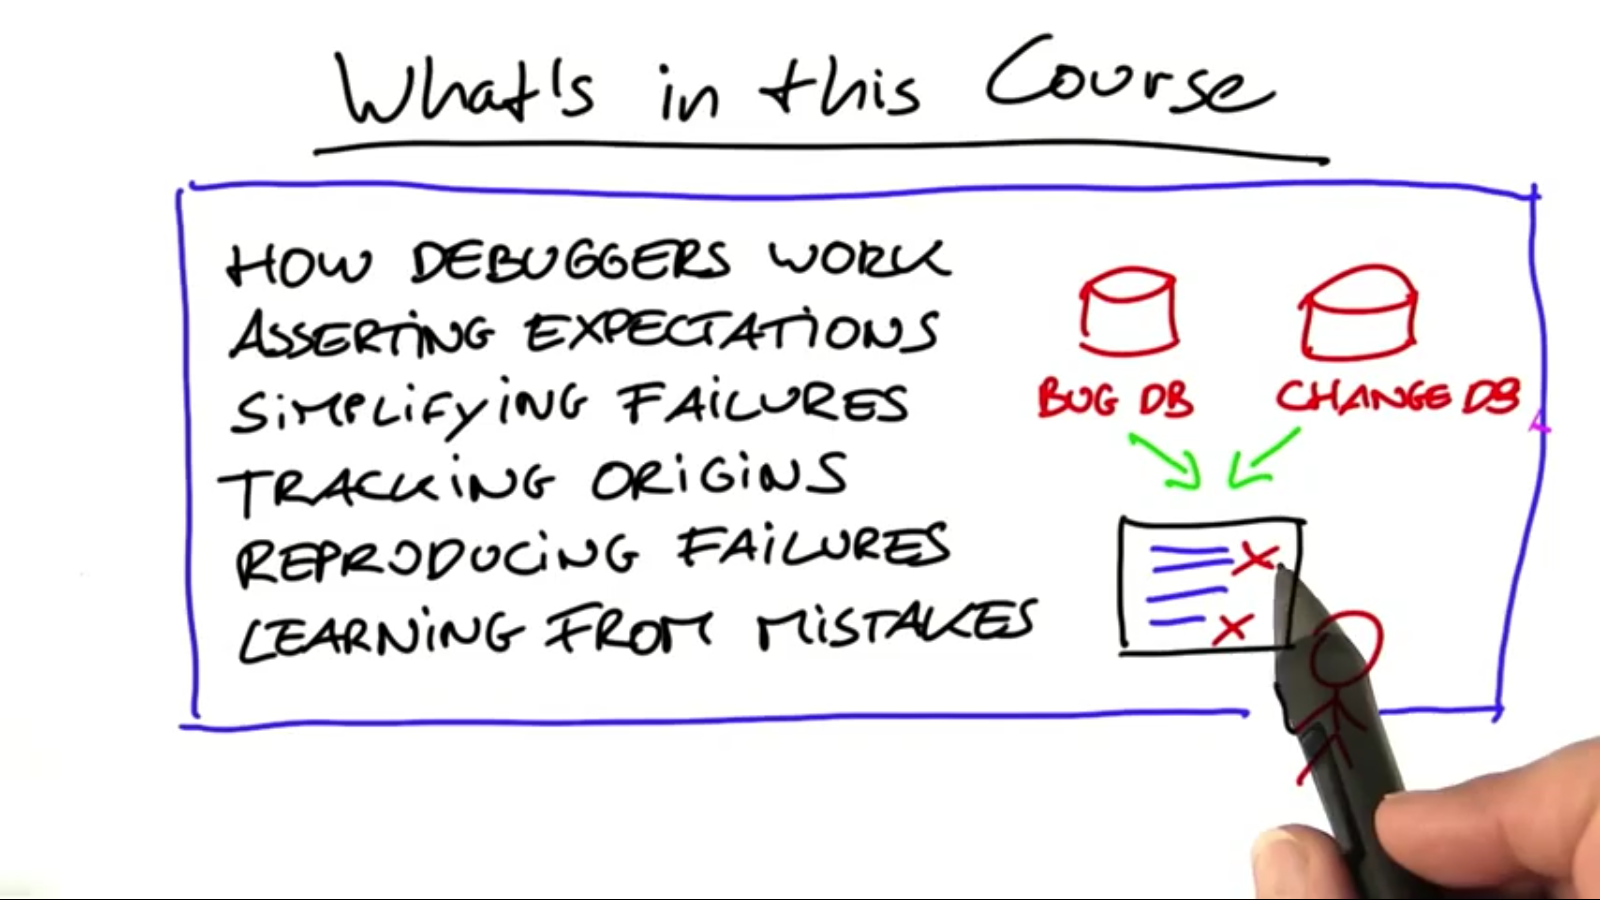 What's in this Course
HOW DEBUGGERS WORK
ASSERTING EXPECTATIONS
SIMPLIFYING FAILURES
TRACKING ORIGINS
REPRODUCING FAILURES
LEARNING FROM MISTAKES
BUG DB
CHANGE DB